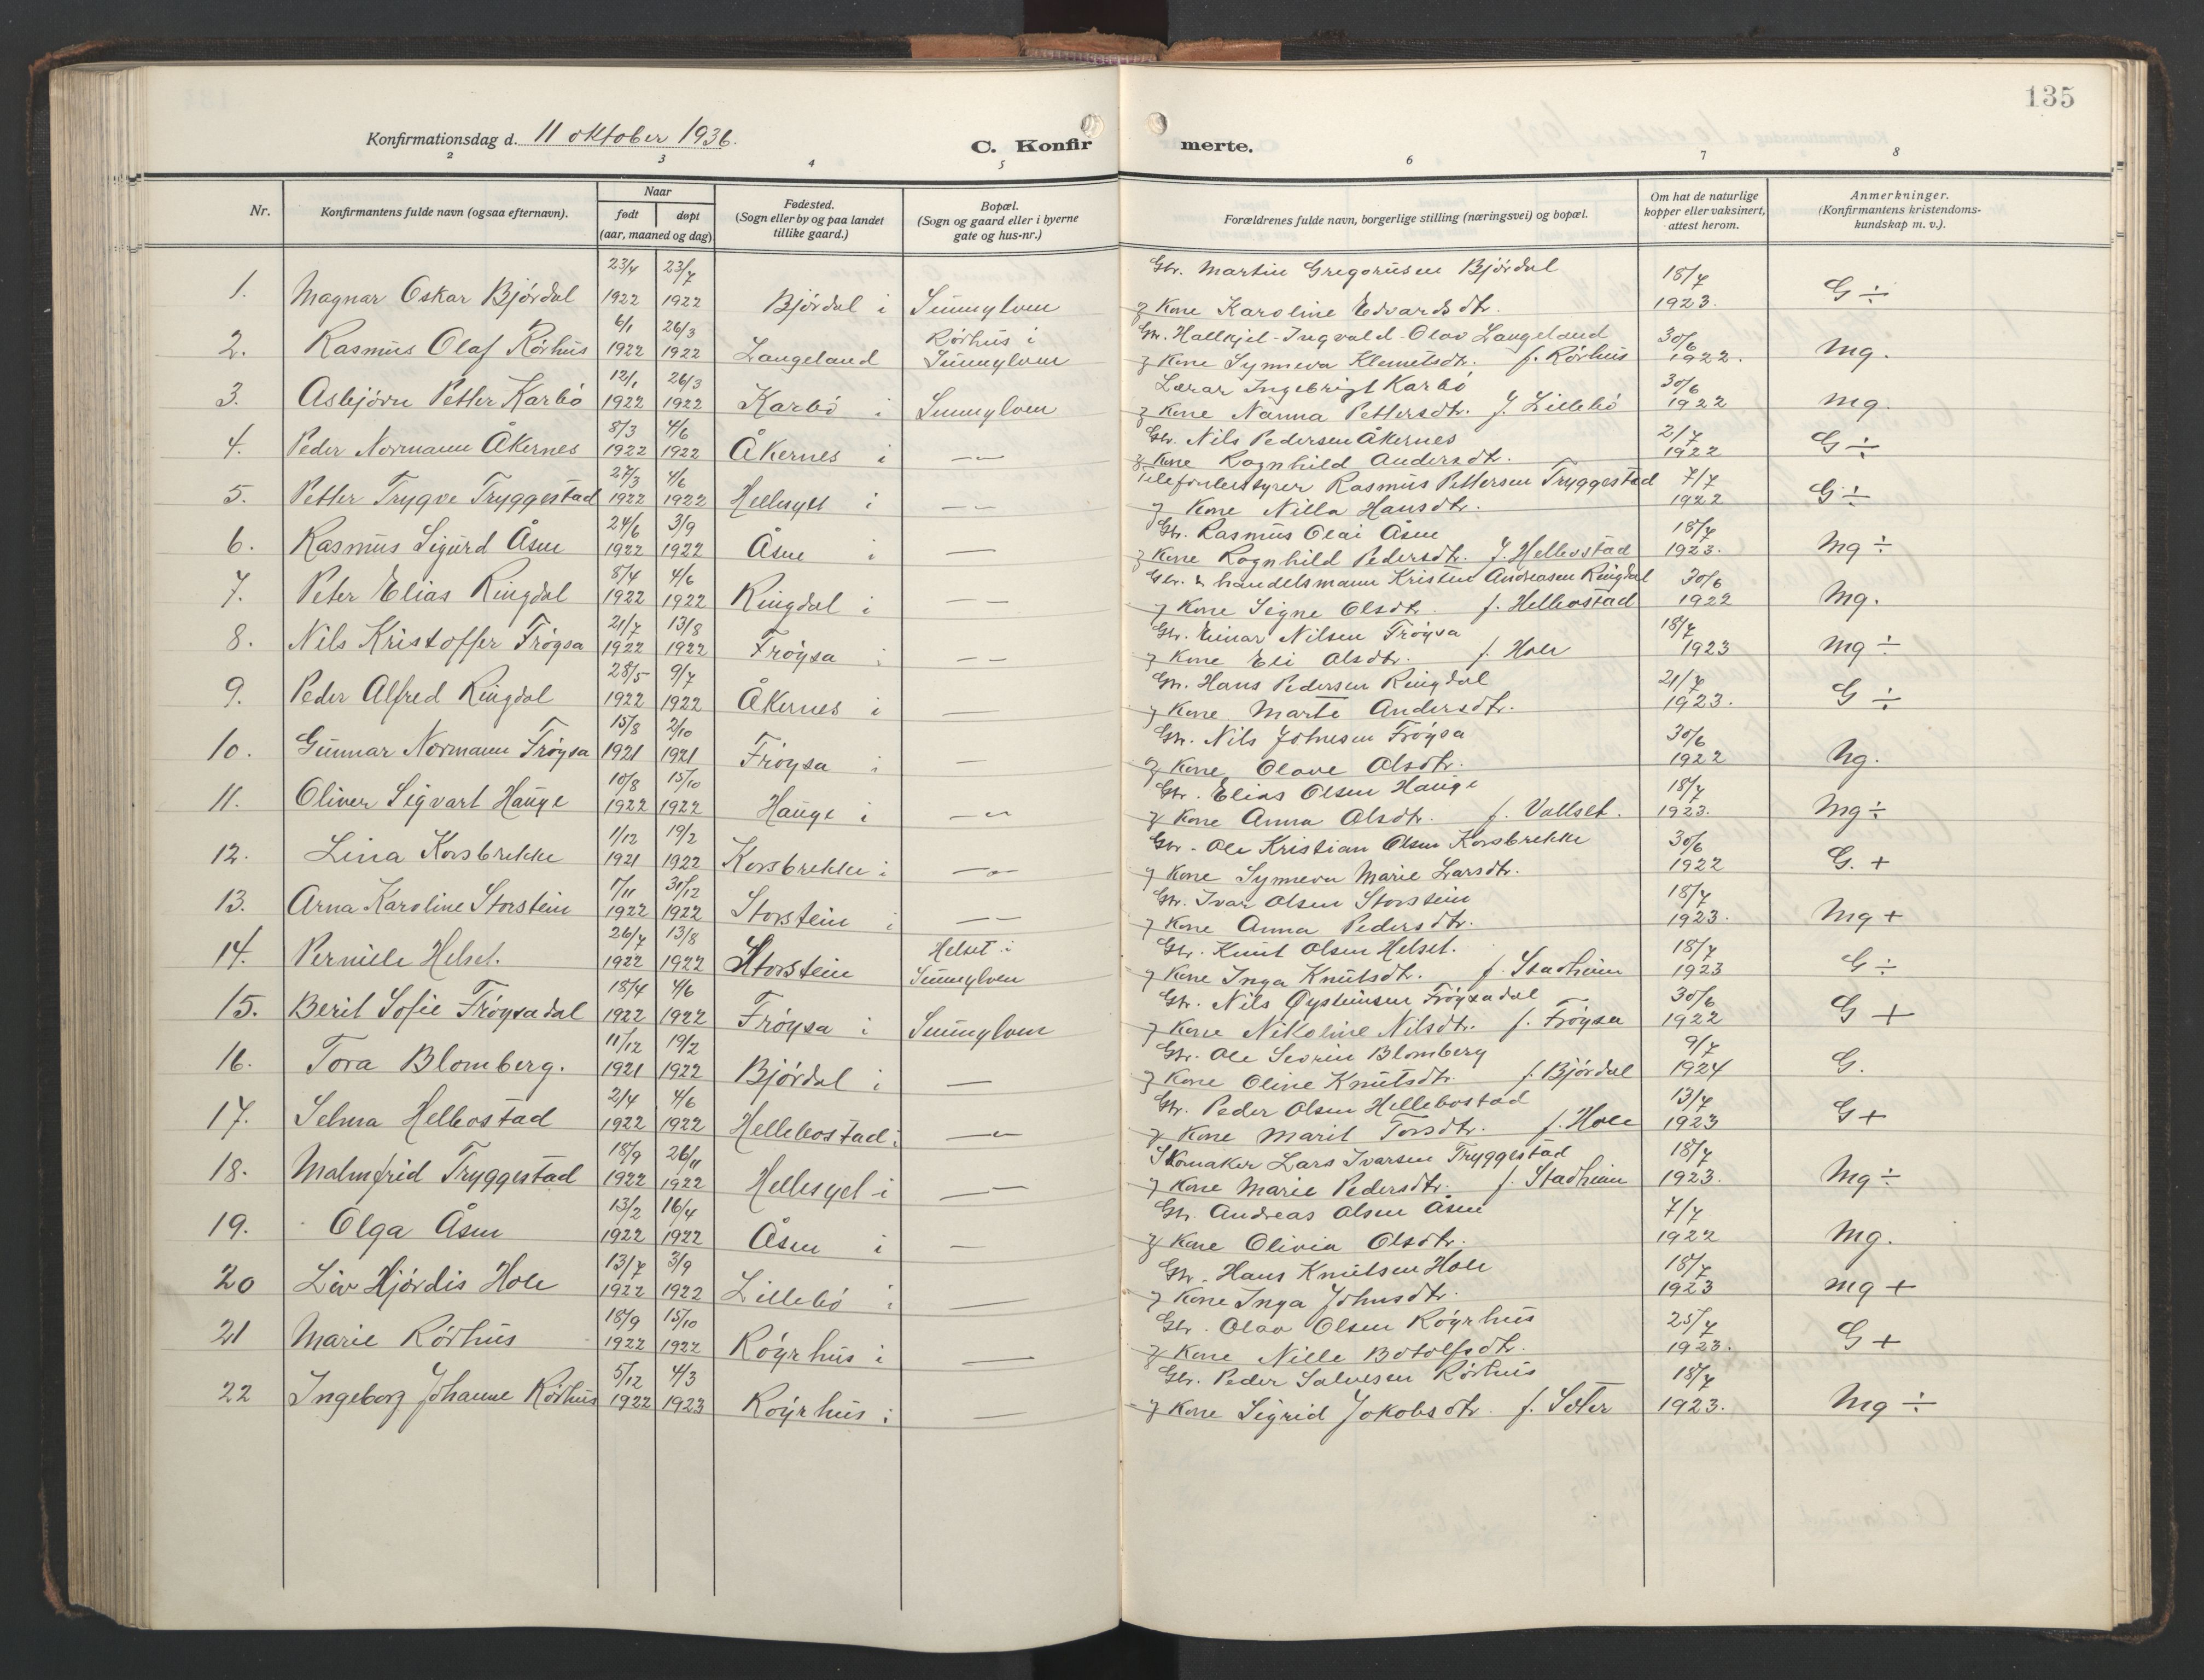 135
Konfirmationsdag d. 11 oktober 1936.
C. Konfir merte.
2 3 4 5 6 7 8
Nr.
Konfirmantens fulde navn (ogsaa efternavn).
Naar
født døpt
(aar, maaned og dag)
Fødested.
(Sogn eller by og paa landet
tillike gaard.)
Bopæl.
(Sogn og gaard eller i byerne
gate og hus-nr.)
Forældrenes fulde navn, borgerlige stilling (næringsvei) og bopæl.
Om hat de naturlige
kopper eller vaksinert,
attest herom.
Anmerkninger.
(Konfirmantens kristendoms-
kundskap m. v.).
23/4 23/7 Gbr. Martin Gregoriusen Bjørdal 18/7
1. Magnar Oskar Bjørdal 1922 1922 Bjørdal i Sunnylven & Kone Karoline Edvardsdtr. 1923. G ÷
6/1 26/3 Rørhus i Gbr. Hallkjel-Ingvald-Olav Langeland 30/6
2. Rasmus Olaf Rörhus 1922 1922 Langeland Sunnylven & Kone Synneva Klemetsdtr. f. Rörhus 1922. Mg.
12/1 26/3 Lærar Ingebrigt Karbö 30/6
3. Asbjörn Petter Karbö 1922 1922 Karbö i Sunnylven & Kone Nanna Pettersdtr. f. Lillebö 1922 Mg.
8/3 4/6 Gbr. Nils Pedersen Åkernes 2/7
4. Peder Normann Åkernes 1922 1922 Åkernes i — & Kone Ragnhild Andersdtr. 1922 G ÷
27/3 4/6 Telefonbestyrer Rasmus Pettersen Tryggestad 7/7
5. Petter Trygve Tryggestad 1922 1922 Hellesylt i — & Kone Nilla Hansdtr. 1922 G ÷
24/6 3/9 Gbr. Rasmus Olai Åsen 18/7
6. Rasmus Sigurd Åsen 1922 1922 Åsen i — & Kone Ragnhild Pedersdtr. f. Hellebostad 1923. Mg ÷
8/4 4/6 Gbr. & handelsmann Kristen Andreasen Ringdal 30/6
7. Peter Elias Ringdal 1922 1922 Ringdal i — & Kone Signe Olsdtr. f. Hellebostad 1922 Mg.
21/7 13/8 Gbr. Einar Nilsen Fröysa 18/7
8. Nils Kristoffer Fröysa 1922 1922 Fröysa i — & Kone Eli Olsdtr. f. Hole 1923 Mg ÷
28/5 9/7 Gbr. Hans Pedersen Ringdal 21/7
9. Peder Alfred Ringdal 1922 1922 Åkernes i — & Kone Marte Andersdtr. 1923. G ÷
15/8 2/10 Gbr. Nils Johnsen Fröysa 30/6
10. Gunnar Normann Fröysa 1921 1921 Fröysa i — & Kone Olave Olsdtr. 1922 Ng.
10/8 15/10 Gbr. Elias Olsen Hauge 18/7
11. Oliver Sigvart Hauge 1922 1922 Hauge i — & Kone Anna Olsdtr. f. Vollset. 1923. Mg ÷
1/12 19/2 Gbr. Ole Kristian Olsen Korsbrekke 30/6
12. Lina Korsbrekke 1921 1922 Korsbrekke i — & Kone Synneva Marie Larsdtr. 1922 G. +
1/11 31/12 Gbr. Ivar Olsen Storstein 18/7
13. Arna Karoline Storstein 1922 1922 Storstein i — & Kone Anna Pedersdtr. 1923. Mg +
26/7 13/8 Helset i Gbr. Knut Olsen Helset. 18/7
14. Pernille Helset. 1922 1922 Storstein Sunnylven & Kone Inga Knutsdtr. f. Stadheim 1923 G ÷
18/4 4/6 Gbr. Nils Øysteinsen Fröysadal 30/6
15. Berit Sofie Fröysadal 1922 1922 Fröysa i Sunnylven & Kone Nikoline Nilsdtr. f. Fröysa 1922 G +
11/12 19/2 Gbr. Ole Severin Blomberg 9/7
16. Tora Blomberg. 1921 1922 Björdal i — & Kone Oline Knutsdtr. f. Björdal 1924 G.
2/4 4/6 Gbr. Peder Olsen Hellebostad 13/7
17. Selma Hellebostad 1922 1922 Hellebostad i — & Kone Marit Torsdtr. f. Hole 1923 G +
18/9 26/11 Skomaker Lars Ivarsen Tryggestad 18/7
18. Malmfrid Tryggestad 1922 1922 Hellesylt i — & Kone Marie Pedersdtr. f. Stadheim 1923. Mg ÷
13/2 16/4 Gbr. Andreas Olsen Åsen 7/7
19. Olga Åsen 1922 1922 Åsen i — & Kone Olivia Olsdtr. 1922 Mg.
13/7 3/9 Gbr. Hans Knutsen Hole 18/7
20 Liv Hjördis Hole 1922 1922 Lillebö i — & Kone Inga Johnsdtr. 1923 mg +
18/9 15/10 Gbr. Olav Olsen Röyrhus 25/7
21 Marie Rörhus 1922 1922 Röyrhus i — & Kone Nille Botolfsdtr. 1923. G +
5/12 4/3 Gbr. Peder Salvesen Rörhus 18/7
22 Ingeborg Johanne Rörhus 1922 1923 Röyrhus i — & Kone Sigrid Jakobsdtr. f. Sæter 1923. Mg ÷